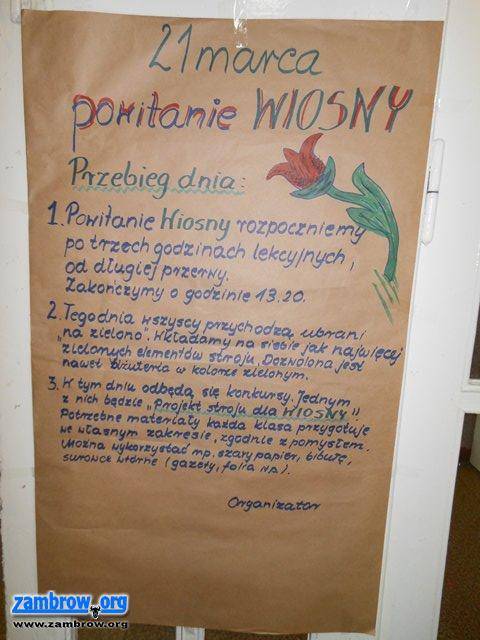 21 marca
powitanie WIOSNY
Przebieg dnia:
1. Powitanie Wiosny rozpoczniemy
po trzech godzinach lekcyjnych,
od długiej przerwy.
Zakończymy o godzinie 13.20.
2. Tego dnia wszyscy przychodzą ubrani
"na zielono". Wkładamy na siebie jak najwięcej
zielonych elementów stroju. Dozwolona jest
nawet biżuteria w kolorze zielonym.
3. W tym dniu odbędą się konkursy. Jednym
z nich będzie „Projekt stroju dla WIOSNY"!
Potrzebne materiały każda klasa przygotuje
we własnym zakresie, zgodnie z pomysłem.
(Można wykorzystać np. szary papier, bibułę,
surowce wtórne (gazety, folia itp.).
Organizator
zambrow.org
www.zambrow.org